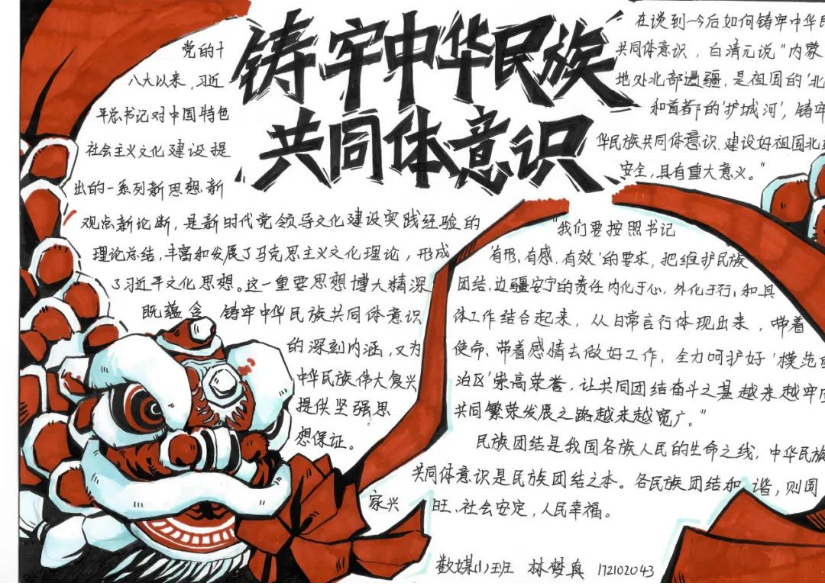 铸牢中华民族
共同体意识
党的十
八大以来,习近
平总书记对中国特色
社会主义文化建设提
出的一系列新思想新
观点新论断,是新时代党领导文化建设实践经验的
理论总结,丰富和发展了马克思主义文化理论,形成
了习近平文化思想。这一重要思想博大精深
既蕴含 铸牢中华民族共同体意识
的深刻内涵,又为
中华民族伟大复兴
提供坚强思
想保证。
在谈到今后如何铸牢中华民
共同体意识,白清元说"内蒙
地处北部边疆,是祖国的'北
和首都的'护城河',铸牢
华民族共同体意识,建设好祖国北
安全,具有重大意义。"
"我们要按照书记
有形、有感、有效'的要求,把维护民族
团结、边疆安宁的责任内化于心,外化于行,和具
体工作结合起来,从日常言行体现出来,带着
使命、带着感情去做好工作,全力呵护好'模范
治区'崇高荣誉,让共同团结奋斗之基越来越牢
共同繁荣发展之路越来越宽广。"
民族团结是我国各族人民的生命之线,中华民族
共同体意识是民族团结之本。各民族团结和谐,则国
家兴 旺、社会安定,人民幸福。
数媒 班 林梦真 172102043